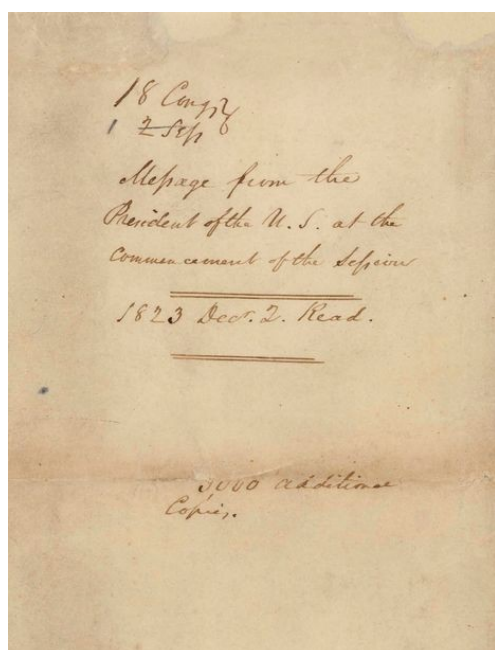 18 Congs
1 2 Sess
Message from the
President of the U. S. at the
Commencement of the Session
1823 Decr. 2. Read.
3000 additional
Copies.